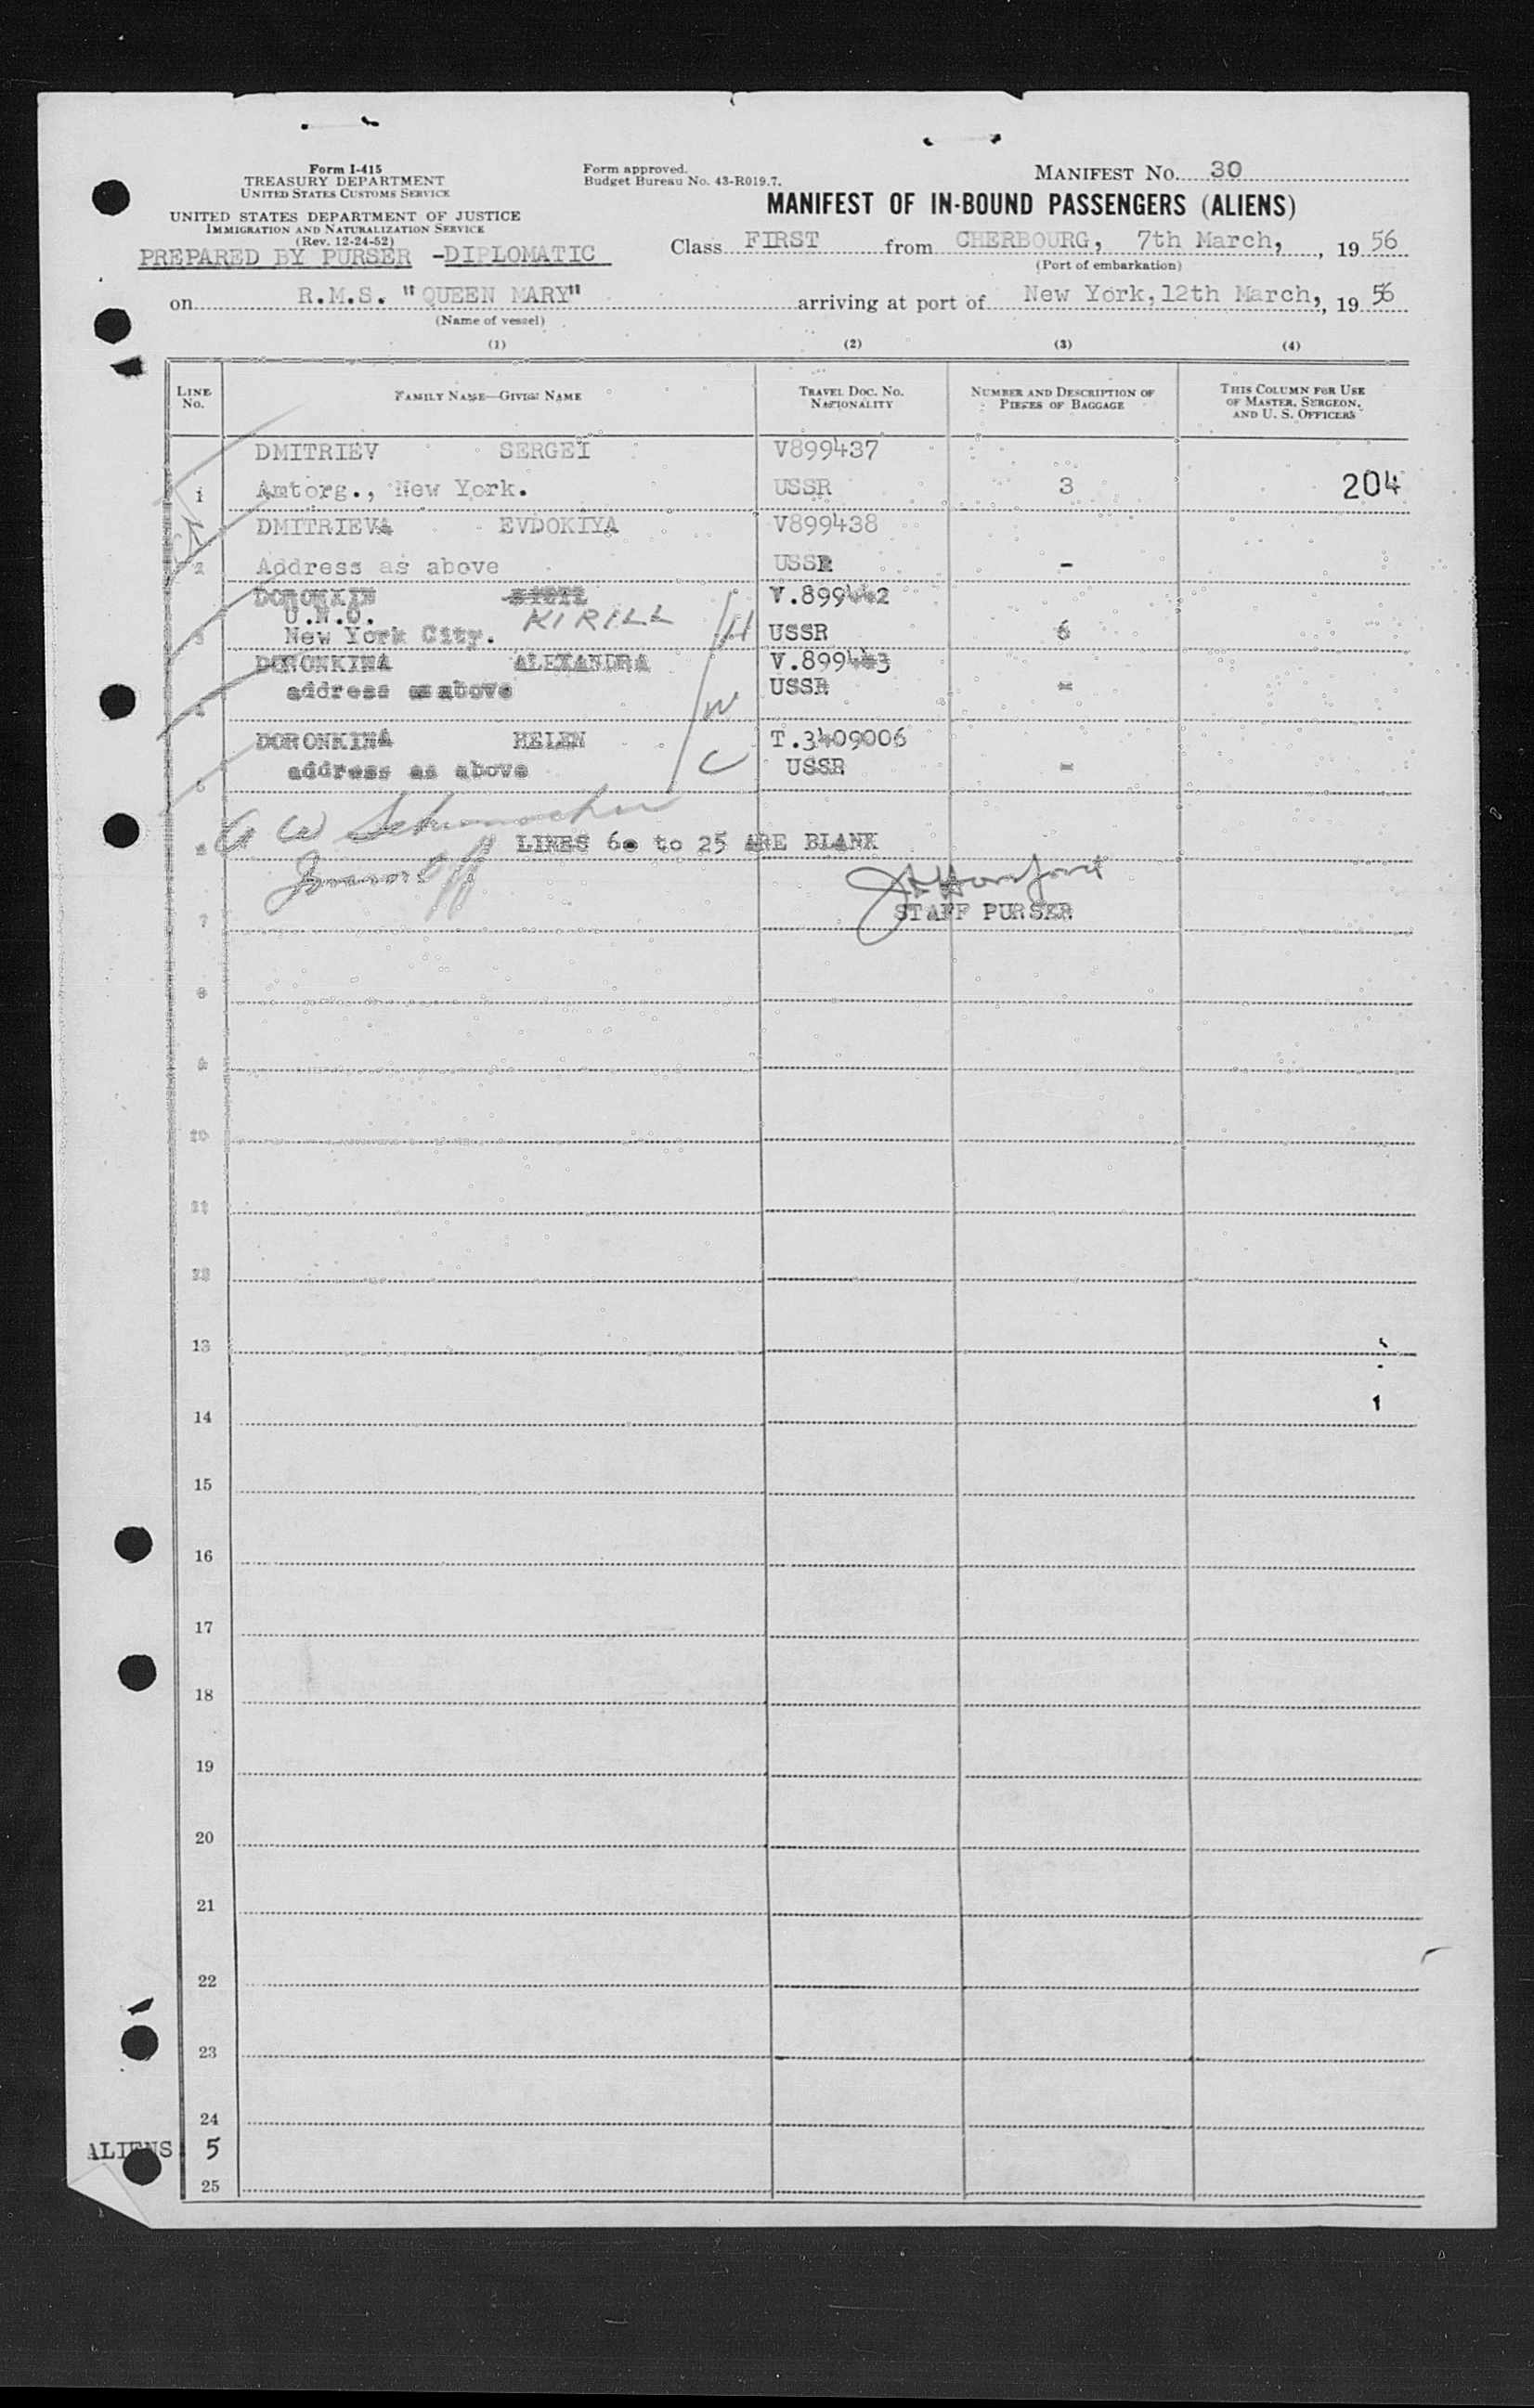 Form I-415
TREASURY DEPARTMENT
UNITED STATES CUSTOMS SERVICE
UNITED STATES DEPARTMENT OF JUSTICE
IMMIGRATION AND NATURALIZATION SERVICE
(Rev. 12-24-52)
PREPARED BY PURSER -DIPLOMATIC
Form approved.
Budget Bureau No. 43-R019.7.
MANIFEST No. 30
MANIFEST OF IN-BOUND PASSENGERS (ALIENS)
Class FIRST from CHERBOURG, 7th March, , 19 56
(Port of embarkation)
on R.M.S. "QUEEN MARY" arriving at port of New York, 12th March, , 19 56
(Name of vessel)
(1) (2) (3) (4)
LINE No. FAMILY NAME—GIVEN NAME TRAVEL DOC. NO. NATIONALITY NUMBER AND DESCRIPTION OF PIECES OF BAGGAGE THIS COLUMN FOR USE OF MASTER, SURGEON, AND U. S. OFFICERS
DMITRIEV SERGEI V899437
1 Amtorg., New York. USSR 3 204
DMITRIEVA EVDOKIYA V899438
2 Address as above USSR -
DORONKIN KIRILL V.899442
U.N.O.
3 New York City. H USSR 6
DORONKINA ALEXANDRA V.899443
address as above USSR -
4 W
DORONKINA HELEN T.3409006
address as above C USSR -
5
G W Schumacher
6 LINES 6 to 25 ARE BLANK
STAFF PURSER
7
8
9
10
11
12
13
14
15
16
17
18
19
20
21
22
23
24
ALIENS 5
25